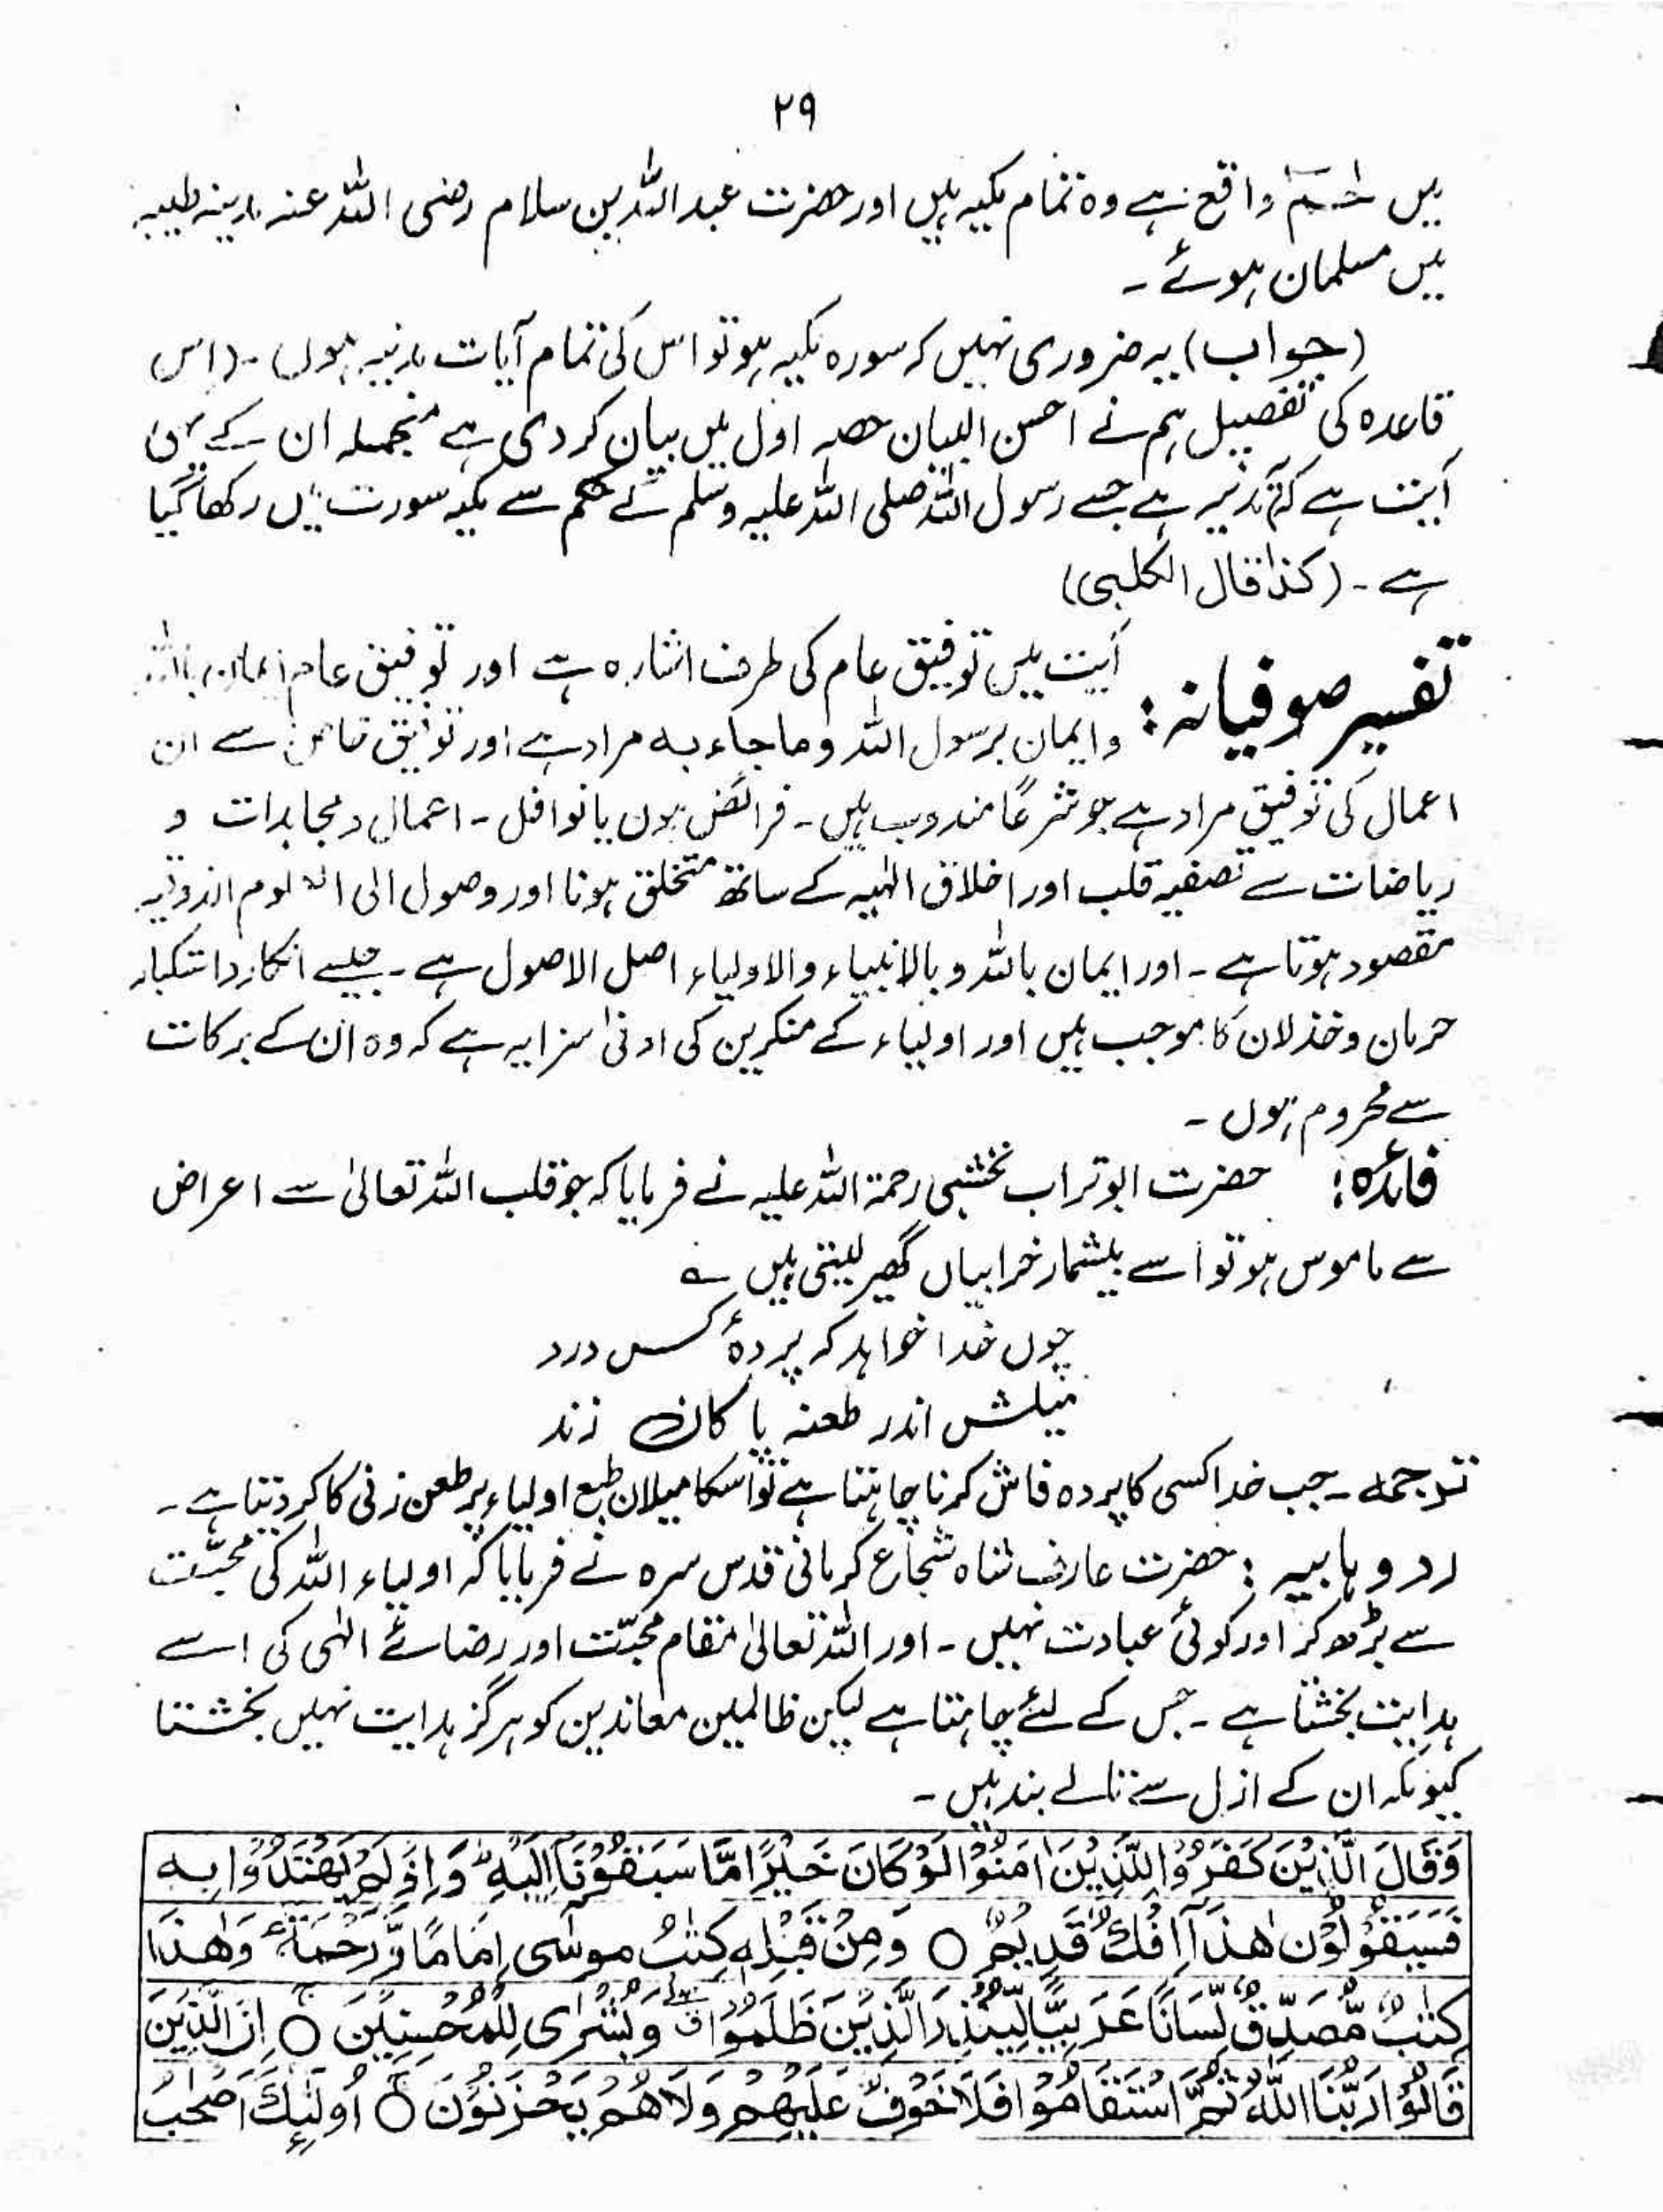 ۲۹
میں حٰمٓ واقع ہے وہ تمام مکیہ ہیں اور حضرت عبداللہ بن سلام رضی اللہ عنہ مدینہ طیبہ
میں مسلمان ہوئے ۔
(جواب) یہ ضروری نہیں کہ سورہ مکیہ ہو تو اس کی تمام آیات مدنیہ ہوں ۔ (اس
قاعدہ کی تفصیل ہم نے احسن البیان حصہ اول میں بیان کر دی ہے منجملہ ان کے
آیت ہے کہ مدنیہ ہے جسے رسول اللہ صلی اللہ علیہ وسلم کے حکم سے مکیہ سورت میں رکھا گیا
ہے ۔ (کذا قال الکلبی)
تفسیر صوفیانہ : آیت میں توفیق عام کی طرف اشارہ ہے اور توفیق عام ایمان باللہ
و ایمان برسول اللہ وما جاء بہ مراد ہے اور توفیق خاص سے ان
اعمال کی توفیق مراد ہے جو شرعًا مندوب ہیں ۔ فرائض ہوں یا نوافل ۔ اعمال و مجاہدات و
ریاضات سے تصفیہ قلب اور اخلاق الٰہیہ کے ساتھ متخلق ہونا اور وصول الی العلوم الذوقیہ
مقصود ہوتا ہے ۔ اور ایمان باللہ و بالانبیاء والاولیاء اصل الاصول ہے ۔ جیسے انکار و استکبار
حرمان و خذلان کا موجب ہیں اور اولیاء کے منکرین کی ادنیٰ سزا یہ ہے کہ وہ ان کے برکات
سے محروم ہوں ۔
فائدہ : حضرت ابو تراب نخشبی رحمۃ اللہ علیہ نے فرمایا کہ جو قلب اللہ تعالیٰ سے اعراض
سے مانوس ہو تو اسے بیشمار خرابیاں گھیر لیتی ہیں ؎
چوں خدا خواہد کہ پردۂ کس درد
میلش اندر طعنہ پاکان زند
ترجمہ ۔ جب خدا کسی کا پردہ فاش کرنا چاہتا ہے تو اسکا میلان طبع اولیاء پر طعن زنی کا کر دیتا ہے ۔
رد وہابیہ : حضرت عارف شاہ شجاع کرمانی قدس سرہ نے فرمایا کہ اولیاء اللہ کی محبّت
سے بڑھ کر اور کوئی عبادت نہیں ۔ اور اللہ تعالیٰ مقام محبّت اور رضائے الٰہی کی اسے
ہدایت بخشتا ہے ۔ جس کے لئے چاہتا ہے لیکن ظالمین معاندین کو ہرگز ہدایت نہیں بخشتا
کیونکہ ان کے ازل سے تالے بند ہیں ۔
وَقَالَ الَّذِيْنَ كَفَرُوْا لِلَّذِيْنَ اٰمَنُوْا لَوْ كَانَ خَيْرًا مَّا سَبَقُوْنَآ اِلَيْهِ ؕ وَاِذْ لَمْ يَهْتَدُوْا بِهٖ
فَسَيَقُوْلُوْنَ هٰذَآ اِفْكٌ قَدِيْمٌ ○ وَمِنْ قَبْلِهٖ كِتٰبُ مُوْسٰى اِمَامًا وَّرَحْمَةً ؕ وَهٰذَا
كِتٰبٌ مُّصَدِّقٌ لِّسَانًا عَرَبِيًّا لِّيُنْذِرَ الَّذِيْنَ ظَلَمُوْا ۖ وَبُشْرٰى لِلْمُحْسِنِيْنَ ○ اِنَّ الَّذِيْنَ
قَالُوْا رَبُّنَا اللّٰهُ ثُمَّ اسْتَقَامُوْا فَلَا خَوْفٌ عَلَيْهِمْ وَلَا هُمْ يَحْزَنُوْنَ ○ اُولٰٓئِكَ اَصْحٰبُ